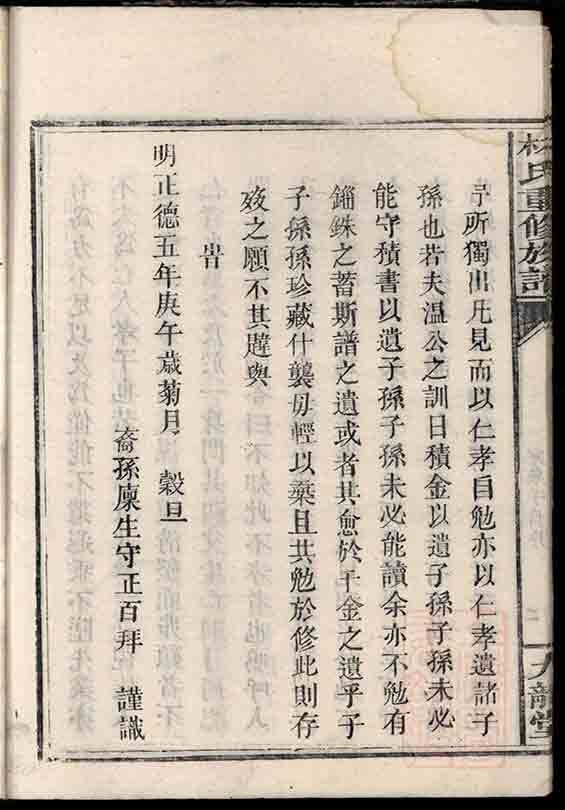 林氏重修族譜
予所獨出凡見而以仁孝自勉亦以仁孝遺諸子
孫也若夫溫公之訓曰積金以遺子孫子孫未必
能守積書以遺子孫子孫未必能讀余亦不勉有
錙銖之蓄斯譜之遺或者其愈於千金之遺乎子
子孫孫珍藏什襲毋輕以棄且共勉於修此則存
兹之願不其韙與
旹
明正德五年庚午歲菊月 穀旦
裔孫廩生守正百拜 謹識
九龍堂